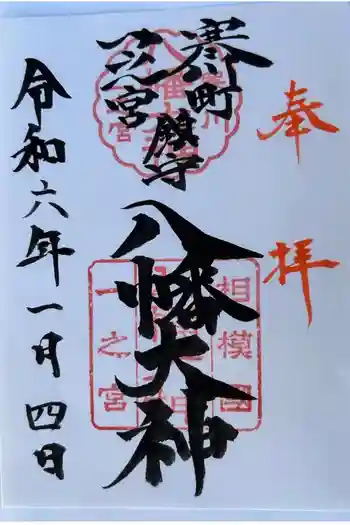 奉拝
寒川町
一之宮
鎮守
八幡大神
相模國
一之宮
令和六年一月四日